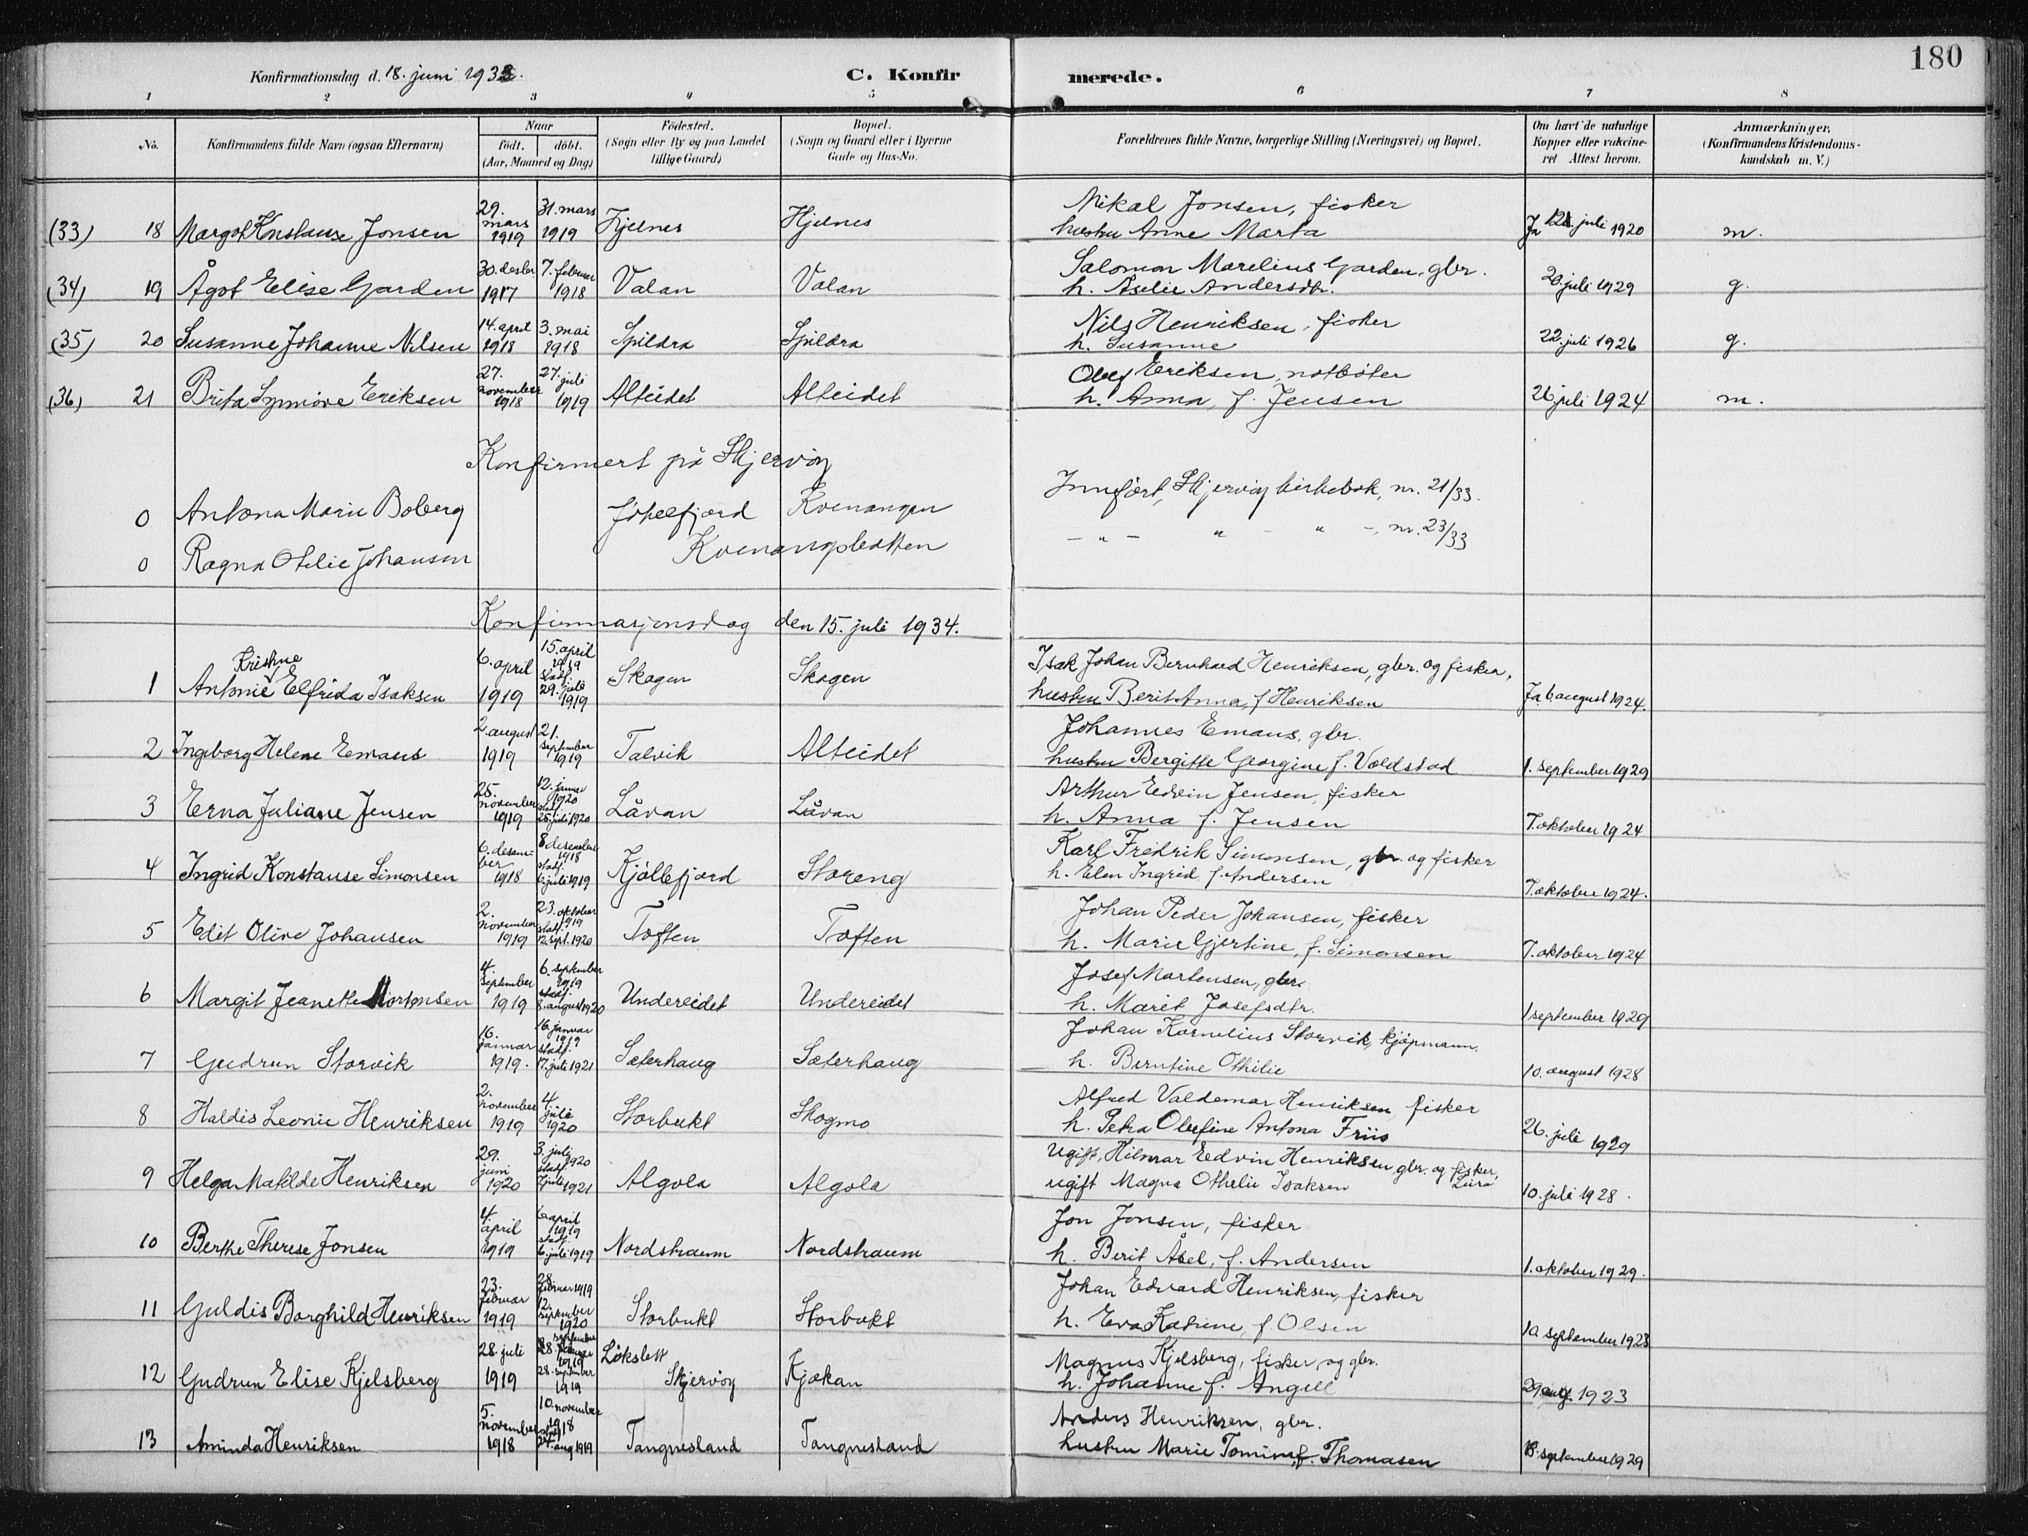 180
Konfirmationsdag d. 18. juni 1933. C. Konfirmerede.
1 2 3 4 5 6 7 8
No. Konfirmandens fulde Navn (ogsaa Efternavn) Naar født. døbt. (Aar, Maaned og Dag) Fødested. (Sogn eller By og paa Landet tillige Gaard) Bopæl. (Sogn og Gaard eller i Byerne Gade og Hus-No. Forældrenes fulde Navne, borgerlige Stilling (Næringsvei) og Bopæl. Om havt de naturlige Kopper eller vaccineret Attest herom. Anmærkninger, (Konfirmandens Kristendomskundskab m. V.)
(33) 18 Margot Konstanse Jonsen 29. mars 1919 31. mars 1919 Hjelnes Hjelnes Nikal Jonsen, fisker hustru Anne Marta Ja juli 1920 m.
(34) 19 Ågot Elise Garden 30. desbr 1917 7. februar 1918 Valan Valan Salomon Marelius Garden, gbr. h. Aselie Andersdtr. 20 juli 1929 g.
(35) 20 Susanne Johanne Nilsen 14. april 1918 3. mai 1918 Spildra Spildra Nils Henriksen, fisker h. Susanne 22. juli 1926 g.
(36) 21 Brita Synnöve Eriksen 27. november 1918 27. juli 1919 Alteidet Alteidet Olaf Eriksen, notbøter h. Anna, f. Jensen 26 juli 1924 m.
Konfirmert på Skjervöy
0 Antona Marie Boberg Jökelfjord Kvenangen Innfört, Skjervöy kirkebok, nr. 21/33.
0 Ragna Otilie Johansen Kvenangsbotten – " – " – " –, nr. 23/33
Konfirmasjonsdag den 15. juli 1934.
1 Antonie Kristine Elfrida Isaksen 6. april 1919 15. april 1919 stadf. 29. juli 1919 Skogen Skogen Isak Johan Bernhard Henriksen, gbr. og fisker, hustru Berit Anna, f Henriksen Ja 6 august 1924.
2 Ingeborg Helene Emaus 2. august 1919 21. september 1919 Talvik Alteidet Johannes Emaus, gbr. hustru Bergitte Georgine f. Voldstad 1. september 1929
3 Erna Juliane Jensen 25. november 1919 12. januar 1920 stadf. 25. juli 1920 Låvan Låvan Arthur Edvin Jensen, fisker h. Anna f. Jensen 7. oktober 1924
4 Ingrid Konstanse Simonsen 6. desember 1918 8 desember 1918 stadf. 6 juli 1919 Kjöllefjord Storeng Karl Fredrik Simonsen, gbr. og fisker h. Elen Ingrid f. Andersen 7. oktober 1924.
5 Edit Olive Johansen 2. november 1919 23. oktober 1919 stadf. 12. sept. 1920 Toften Toften Johan Peder Johansen, fisker h. Marie Gjertine, f. Simonsen 7. oktober 1924
6 Margit Jeanette Mortensen 4. september 1919 6. september 1919 stadf. 8. august 1920 Undereidet Undereidet Josef Martensen, gbr. h. Marit Josefsdtr. 1 september 1929
7 Gudrun Storvik 16. januar 1919. 16. januar 1919 stadf. 17. juli 1921 Sæterhaug Sæterhaug Johan Kornelius Storvik, kjøpmann. h. Berntine Othilie 10. august 1928
8 Haldis Leonie Henriksen 2. november 1919 4. juli 1920 Storbukt Skogmo Alfred Valdemar Henriksen fisker h. Petra Olufine Antona Friis 26. juli 1929
9 Helga Matilde Henriksen 29. juni 1920 3. juli 1920 stadf. 7 juli 1921 Algola Algola Ugift, Hilmar Edvin Henriksen gbr. og fisker, ugift Magna Othelie Isaksen 10. juli 1928.
10 Berthe Therese Jonsen 4 april 1919 6 april 1919 stadf. 6. juli 1919 Nordstraum Nordstraum Jon Jonsen, fisker h. Berit Åsel, f. Andersen 1. oktober 1929.
11 Guldis Borghild Henriksen 23. februar 1919 28 februar 1919 12. september 1920 Storbukt Storbukt Johan Edvard Henriksen, fisker h. Eva Katrine, f Olsen 10 september 1923
12 Gudrun Elise Kjelsberg 28. juli 1919 28. september 1919 28. september 1919 Lökslett Skjervöy Kjækan Magnus Kjelsberg, fisker og gbr. h. Johanne f. Angell 29. aug 1923
13 Aminda Henriksen 5. november 1918 10. november 1918 stadf 24. aug 1919 Tangnesland Tangnesland Anders Henriksen, gbr. hustru Marie Tomine, f. Thomasen 18. september 1929